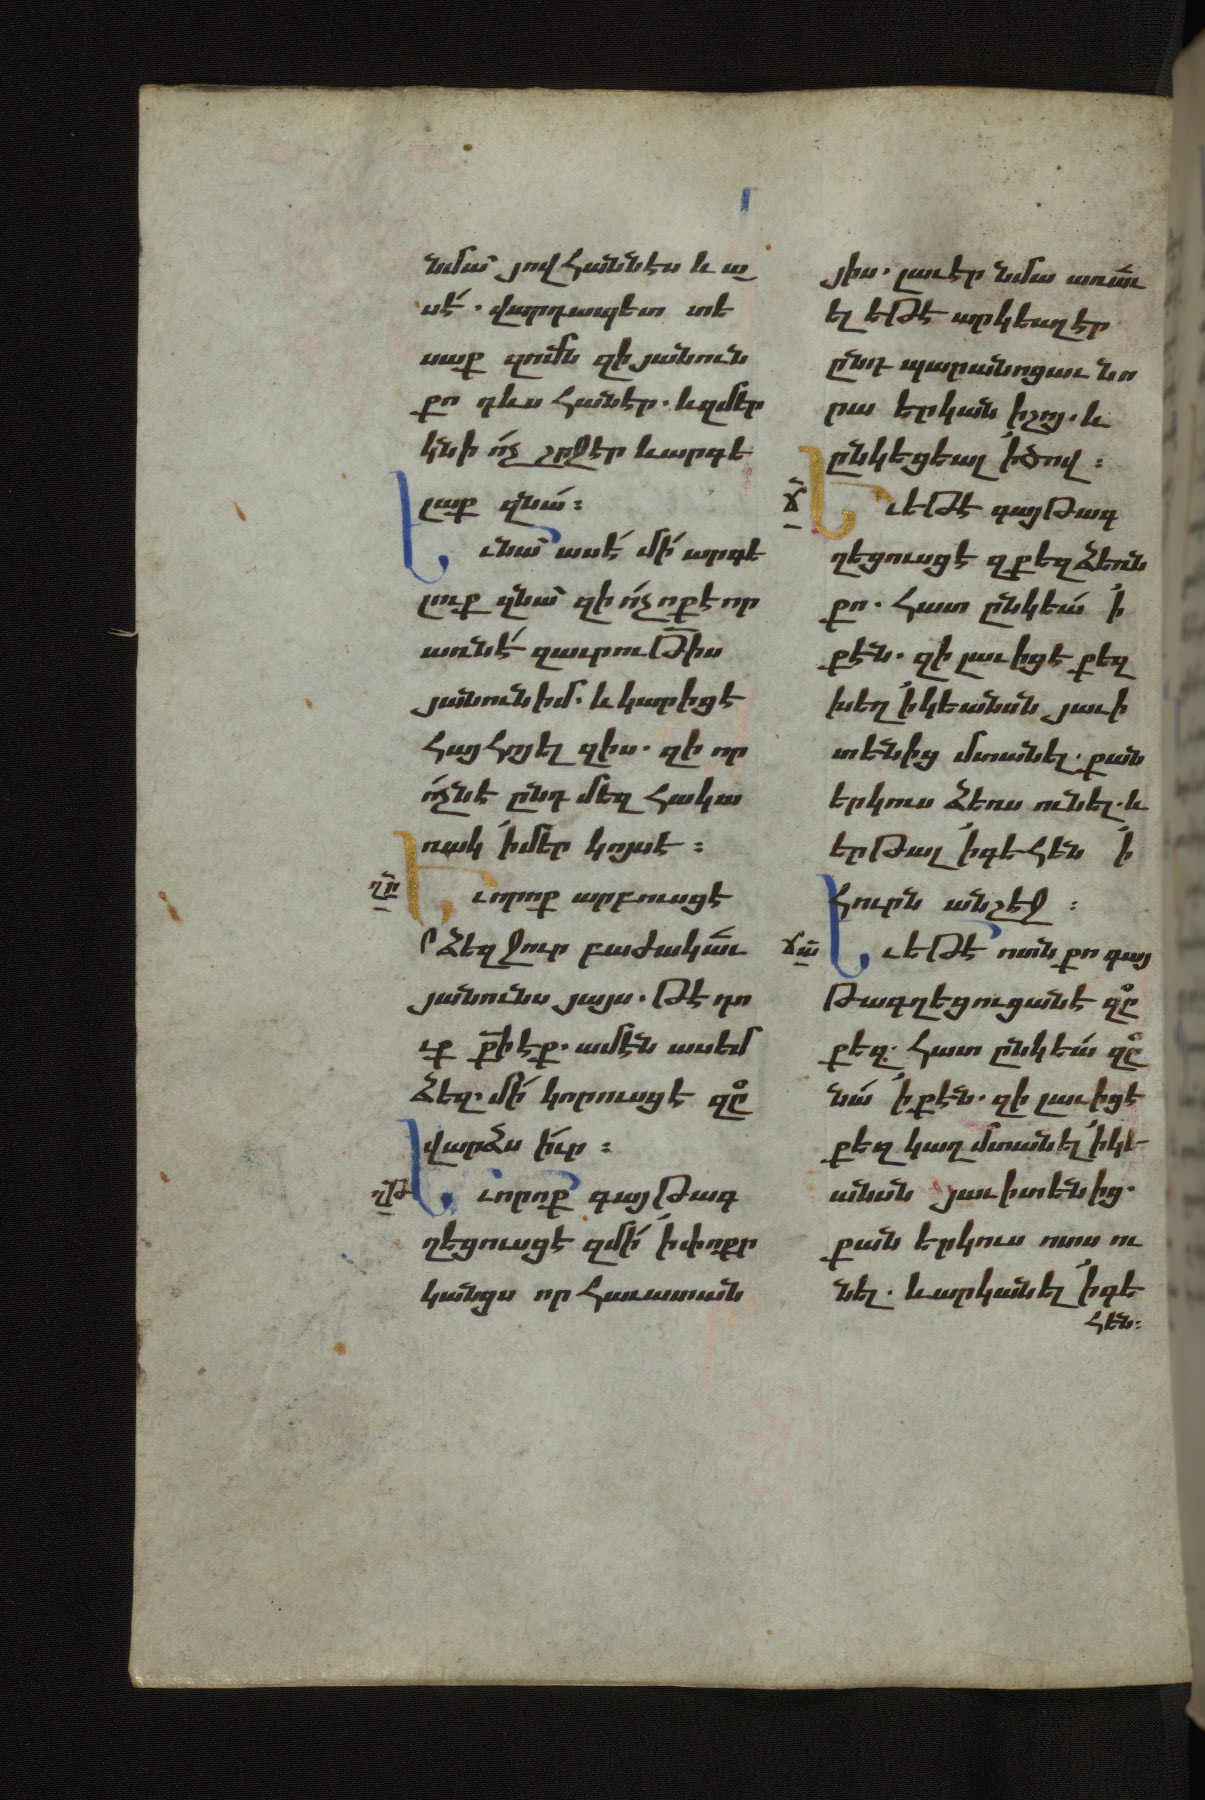 նմա՝ յովհաննէս և ա
սէ՛. վարդապետ տե
սաք զոմն զի յանուն
քո դևս հանէր. և զմեր
կնի ո՛չ շրջէր և արգե
լաք զնա՛։
Եւ նա՝ ասէ՛ մի՛ արգե
լուք զնա՝ զի ո՛չ ոք է որ
առնէ՛ զաւրութիս
յանուն իմ. և կարիցէ
հայհոյել զիս. զի որ
ո՛չնէ ընդ մեզ հակա
ռակ ՛ի մեր կոյսէ։
ղը Եւ որոք արբուսցէ
ձեզ ջուր բաժակաւ
յանունս յայս. թէ դո
ւք քի էք. ամէն ասեմ
ձեզ մի՛ կորուսցէ զը
վարձս ի՛ւր։
ղթ Եւ որոք գայթագ
ղեցուսցէ զմի՛ ՛ի փոքր
կանցս որ հաւատան
յիս. լաւ էր նմա առաւ
ել եթէ արկեալ էր
ընդ պարանոցաւ նո
րա երկան իշոյ. և
ընկեցեալ ՛ի ծով։
ճ Եւ եթէ գայթագ
ղեցուսցէ զքեզ ձեռն
քո. հատ ընկեա՛ ՛ի
քէն. զի լաւ իցէ քեզ
խեղ ՛ի կեանսն յաւի
տենից մտանել. քան
երկուս ձեռս ունել. և
երթալ ՛ի գեհեն ՛ի
հուրն անշէջ։
ճա Եւ եթէ՛ ոտն քո գայ
թագղեցուցանէ զը
քեզ. հատ ընկեա՛ զը
նա՛ ՛ի քէն. զի լաւ իցէ
քեզ կաղ մտանել ՛ի կե
անսն յաւիտենից.
քան երկուս ոտս ու
նել. և արկանել ՛ի գե
հեն։